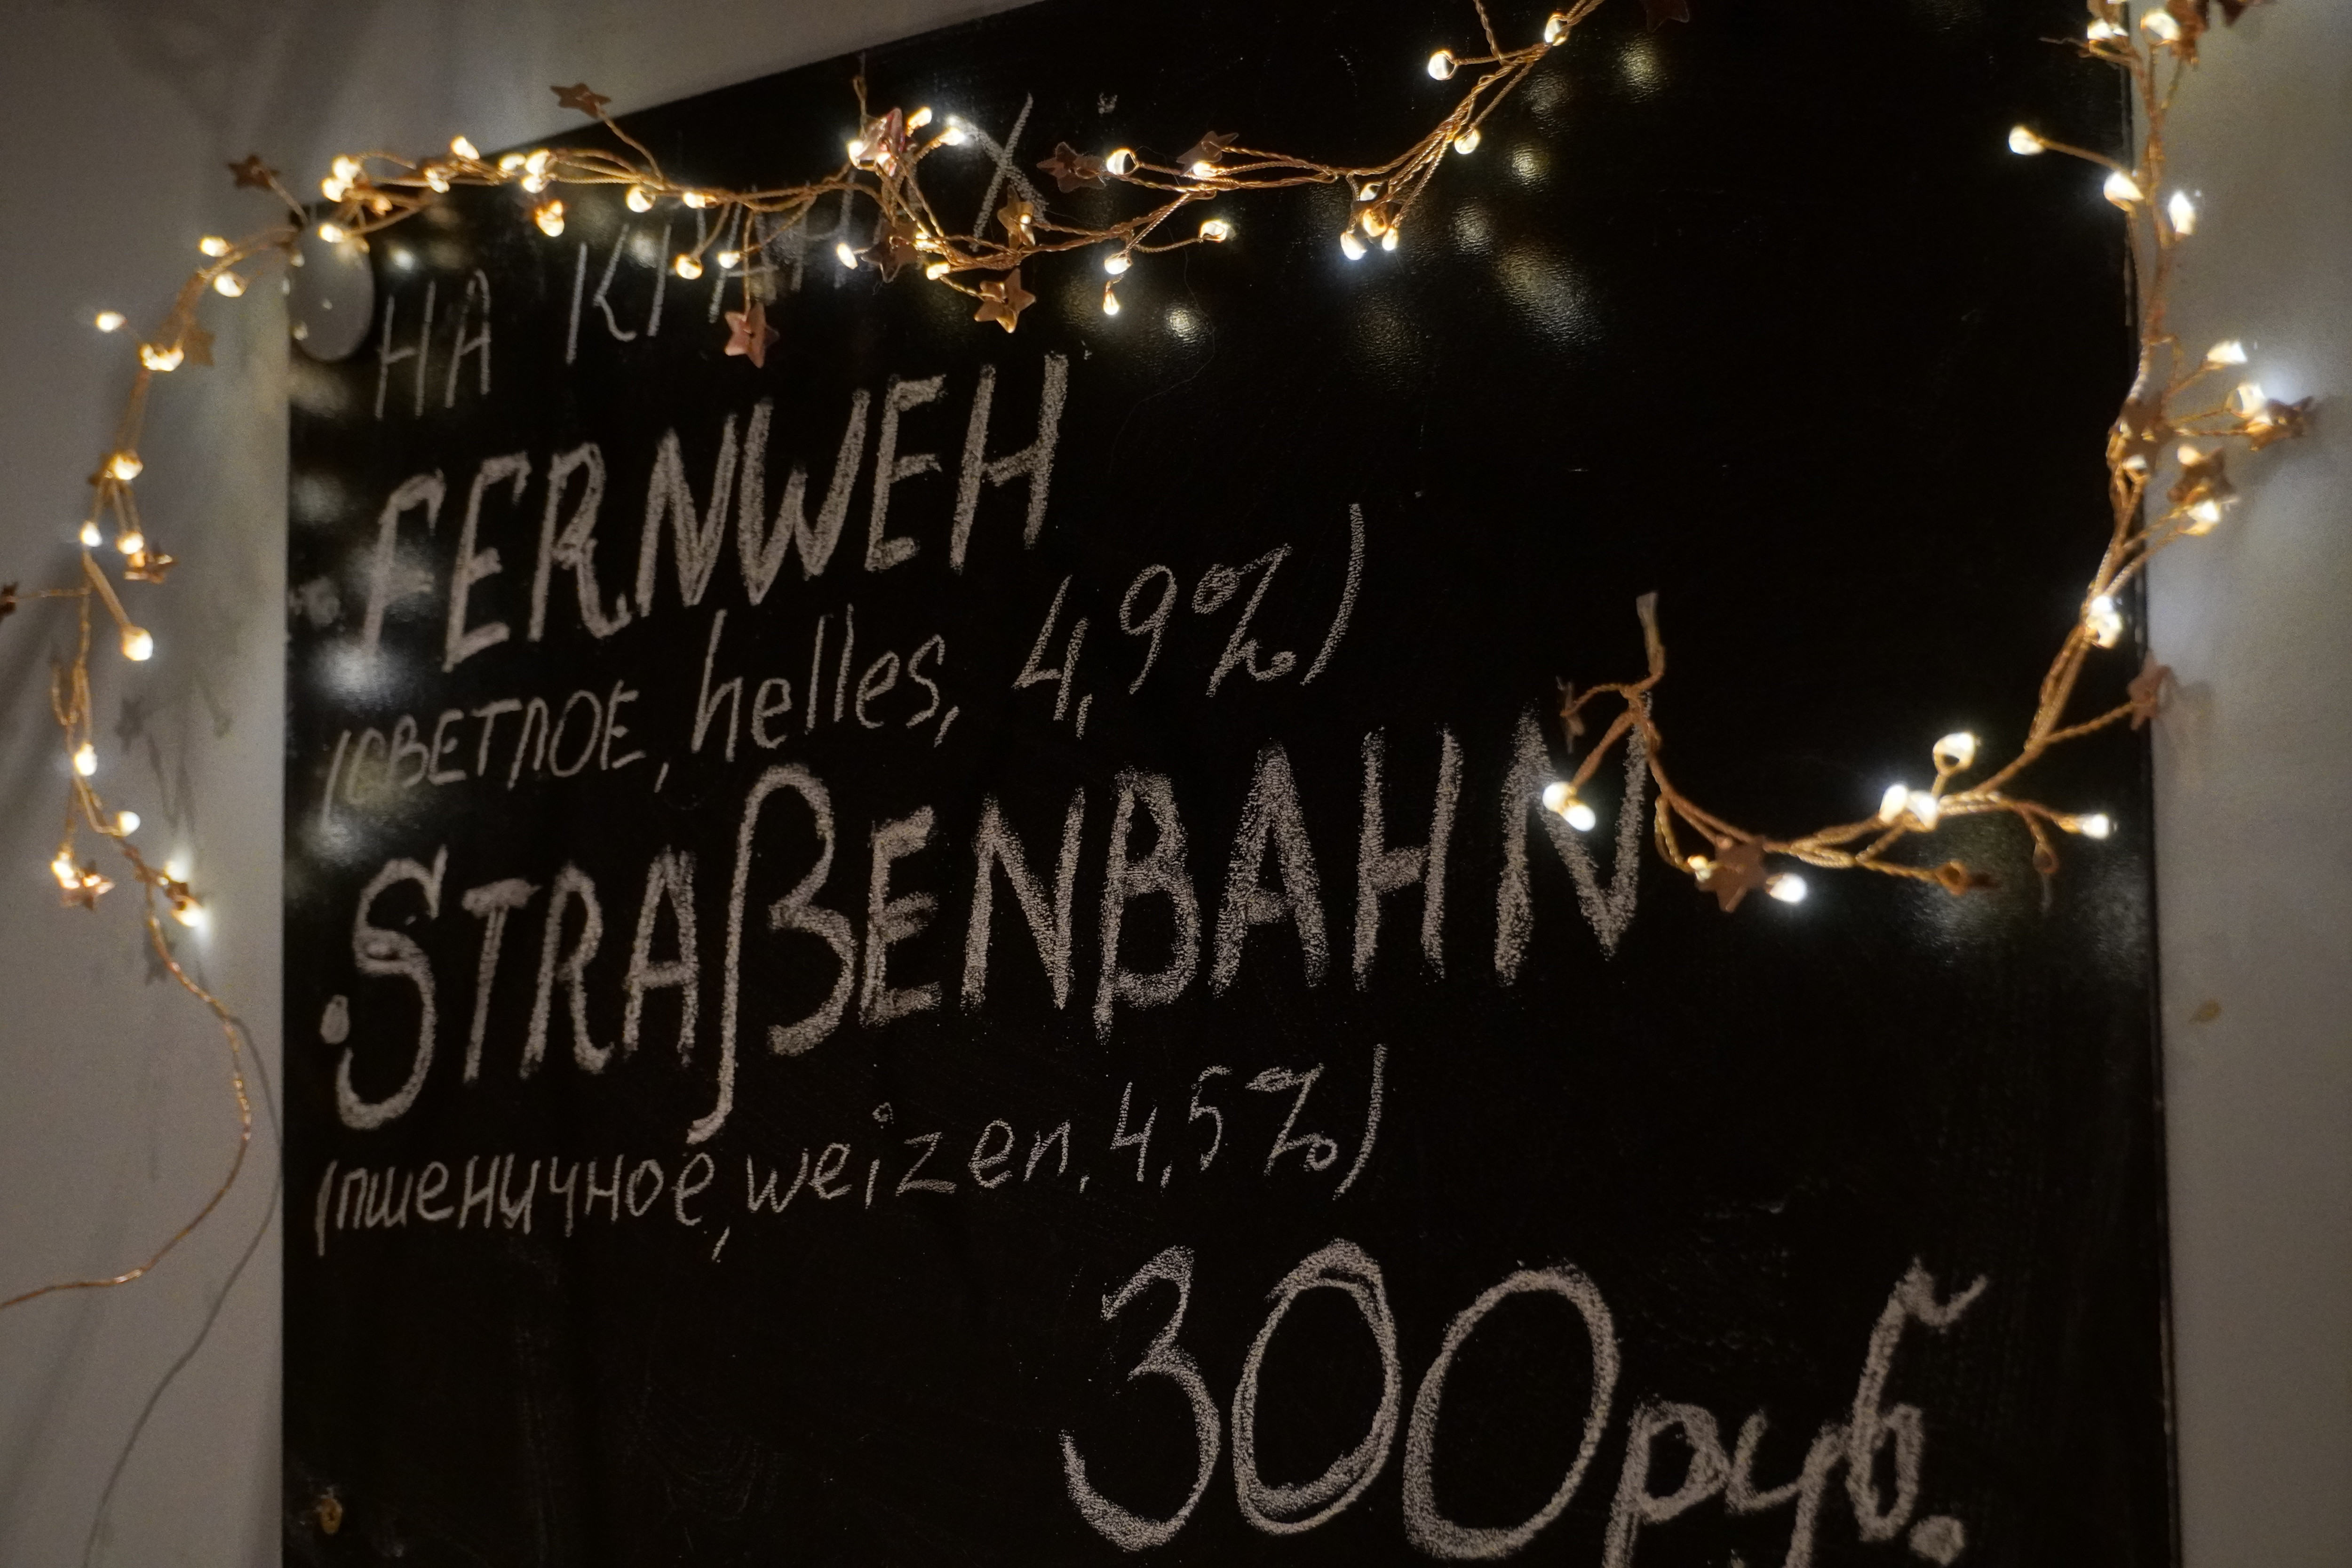 НА КРАНАХ:
FERNWEH
(СВЕТЛОЕ, helles, 4,9%)
STRAßENBAHN
(пшеничное, weizen, 4,5%)
300 руб.